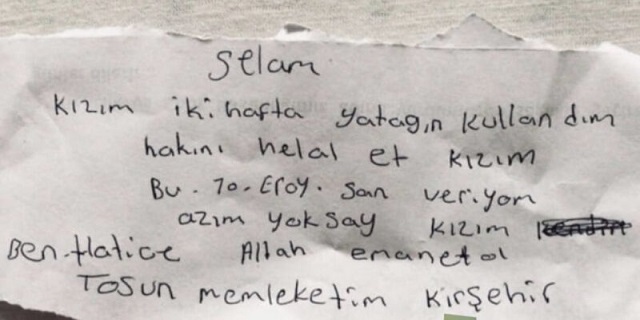 Selam
Kızım iki hafta yatagın kullandım
hakını helal et kızım
Bu. 70. Eroy. San veriyom
azım yok say kızım
Ben Hatice Allah emanet ol
Tosun memleketim Kırşehir